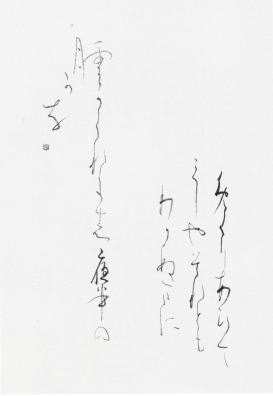 めぐりあひて
みしやそれとも
わかぬまに
雲かくれにし夜半の
月
か那